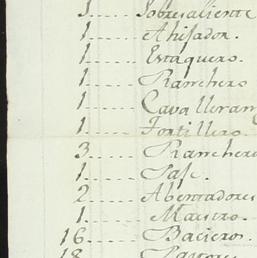 1..... Sobresaliente
1..... Ahijador.
1..... Estaquero.
1..... Ranchero
1..... Cavalleran
1..... Tortillero.
3..... Ranchero
1..... Pase.
2..... Abentadores
1..... Maestro.
16..... Bacieros.
18..... Pastores